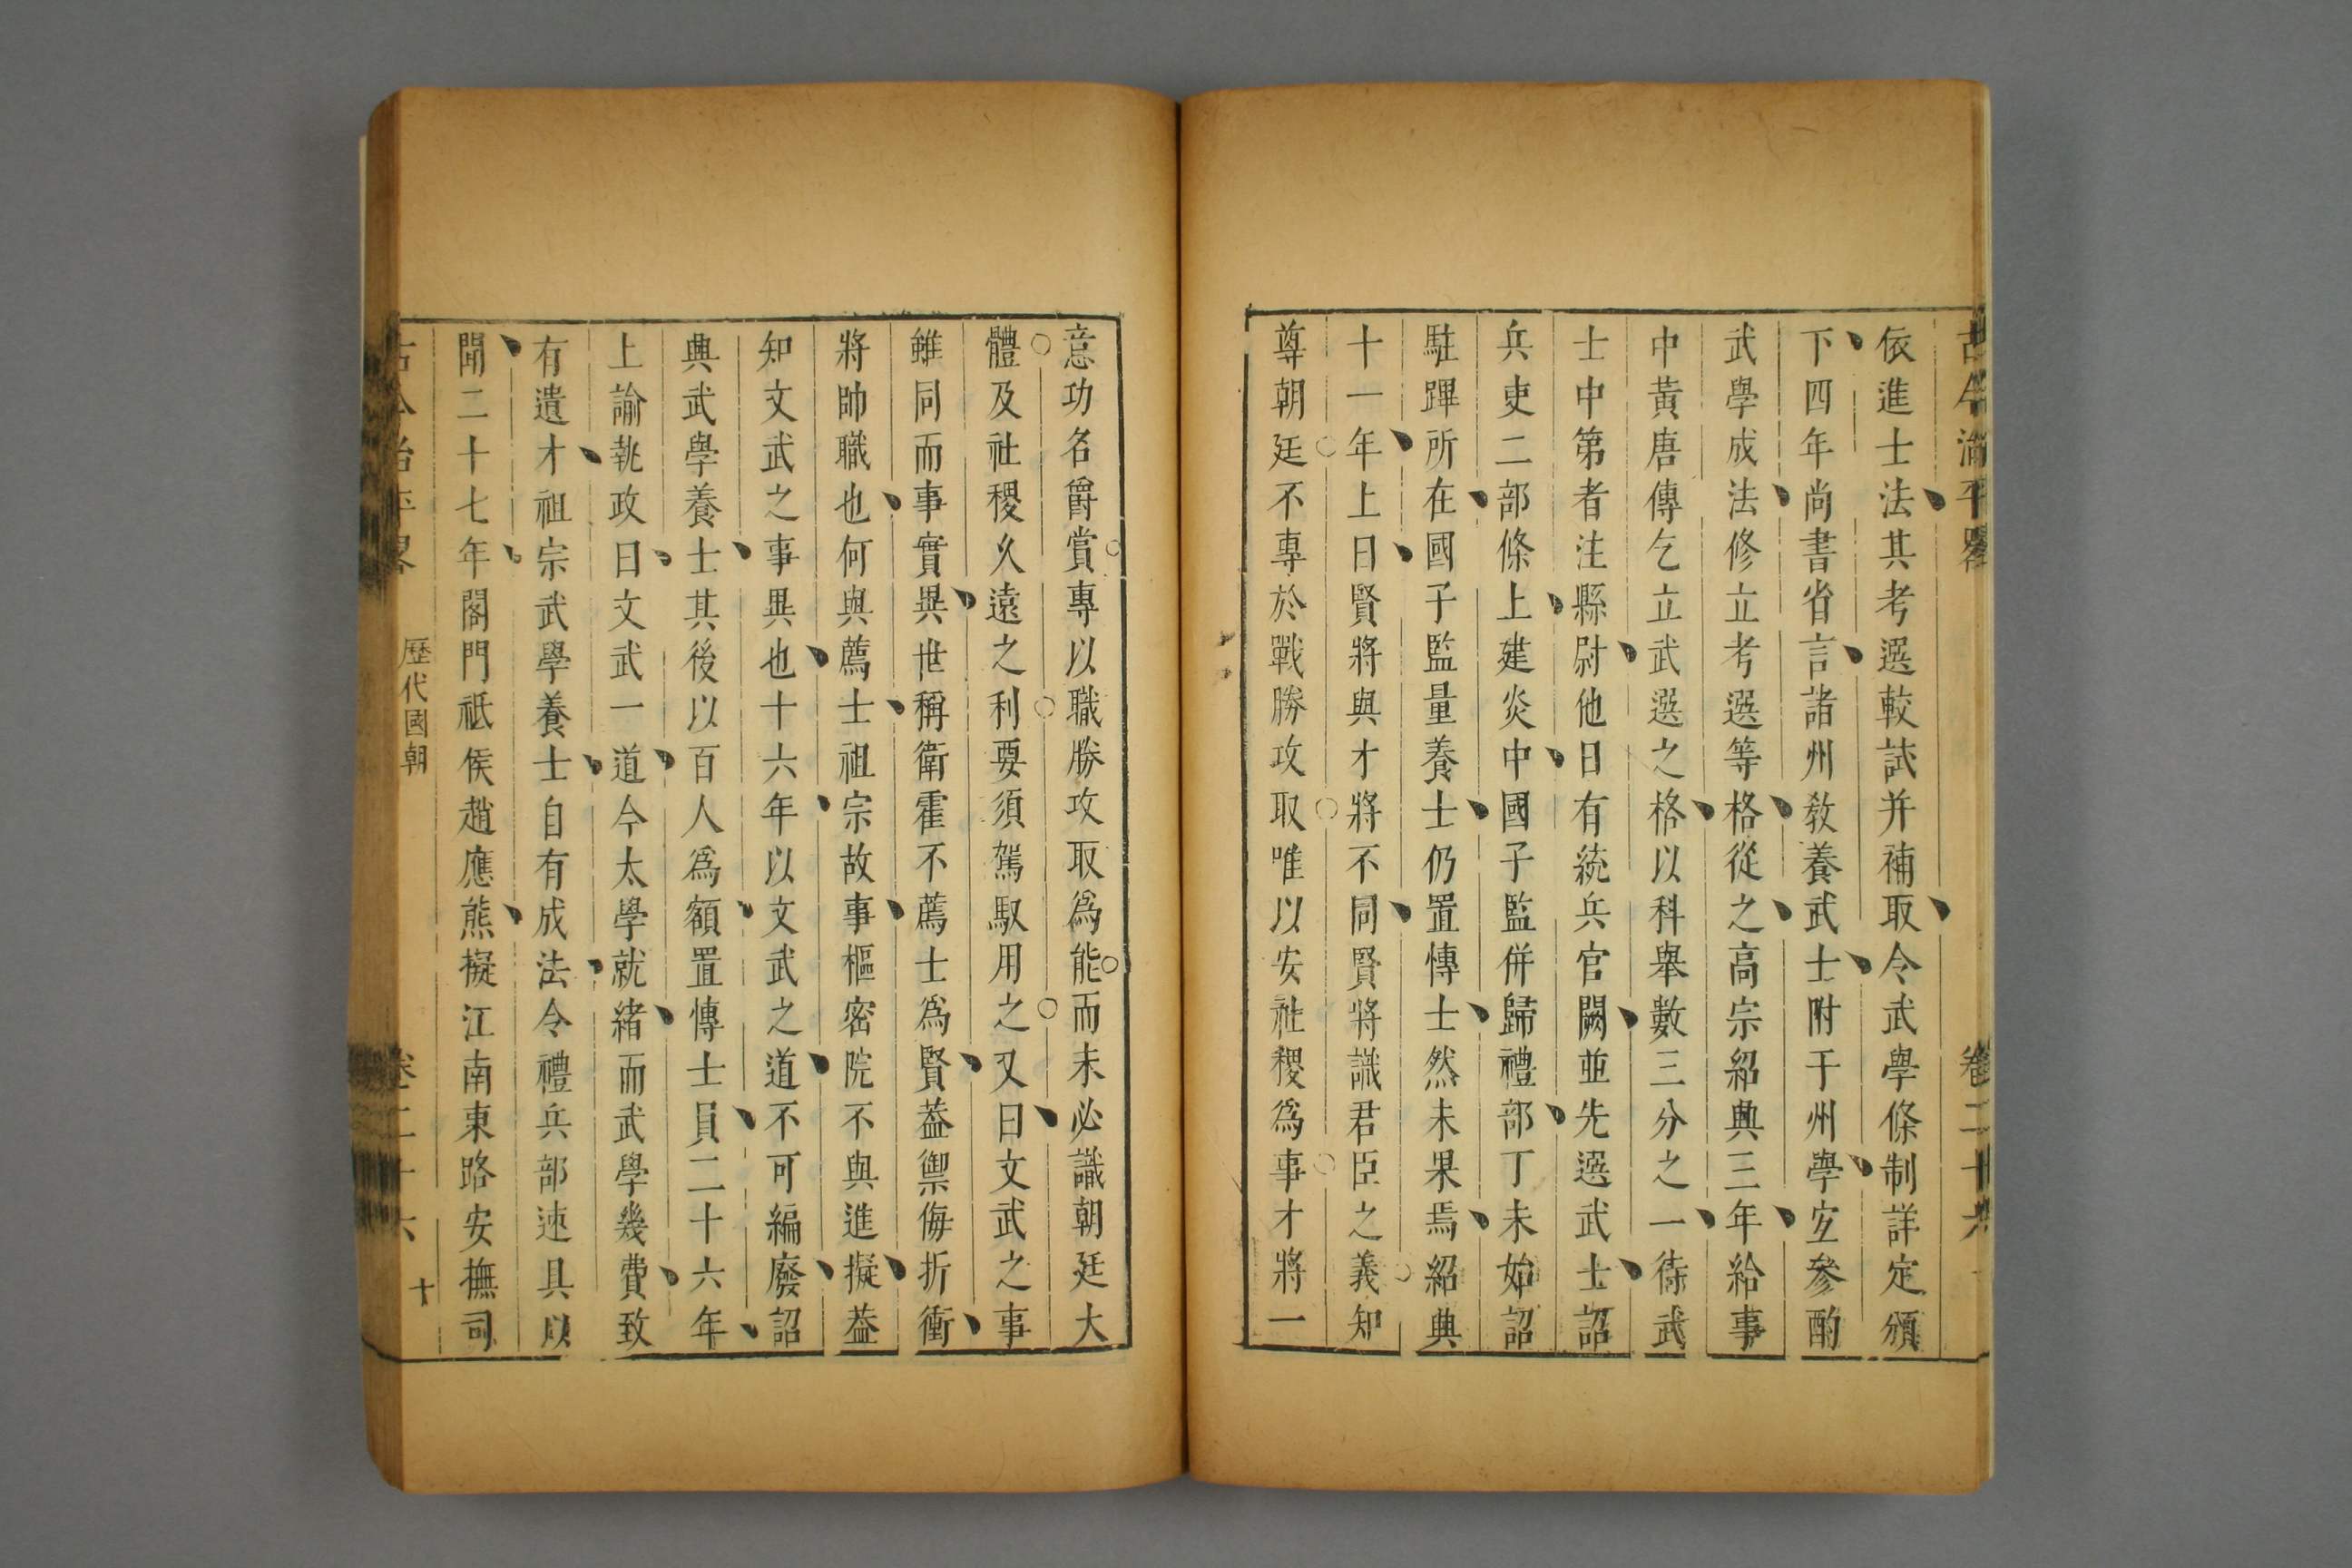 古今治平畧 卷二十六
依進士法其考選較試并補取令武學條制詳定頒
下四年尚書省言諸州敎養武士附于州學宜參酌
武學成法修立考選等格從之高宗紹興三年給事
中黃唐傳乞立武選之格以科舉數三分之一待武
士中第者注縣尉他日有統兵官闕並先選武士詔
兵吏二部條上建炎中國子監併歸禮部丁未始詔
駐蹕所在國子監量養士仍置愽士然未果焉紹興
十一年上曰賢將與才將不同賢將識君臣之義知
尊朝廷不專於戰勝攻取唯以安社稷爲事才將一
意功名爵賞專以職勝攻取爲能而未必識朝廷大
體及社稷久遠之利要須駕馭用之又曰文武之事
雖同而事實異世稱衛霍不薦士爲賢葢禦侮折衝
將帥職也何與薦士祖宗故事樞密院不與進擬葢
知文武之事異也十六年以文武之道不可編廢詔
興武學養士其後以百人爲額置愽士員二十六年
上諭執政曰文武一道今太學就緒而武學幾費致
有遺才祖宗武學養士自有成法令禮兵部速具以
聞二十七年閣門祗侯趙應熊擬江南東路安撫司
古今治平畧 歷代國朝 卷二十六 十